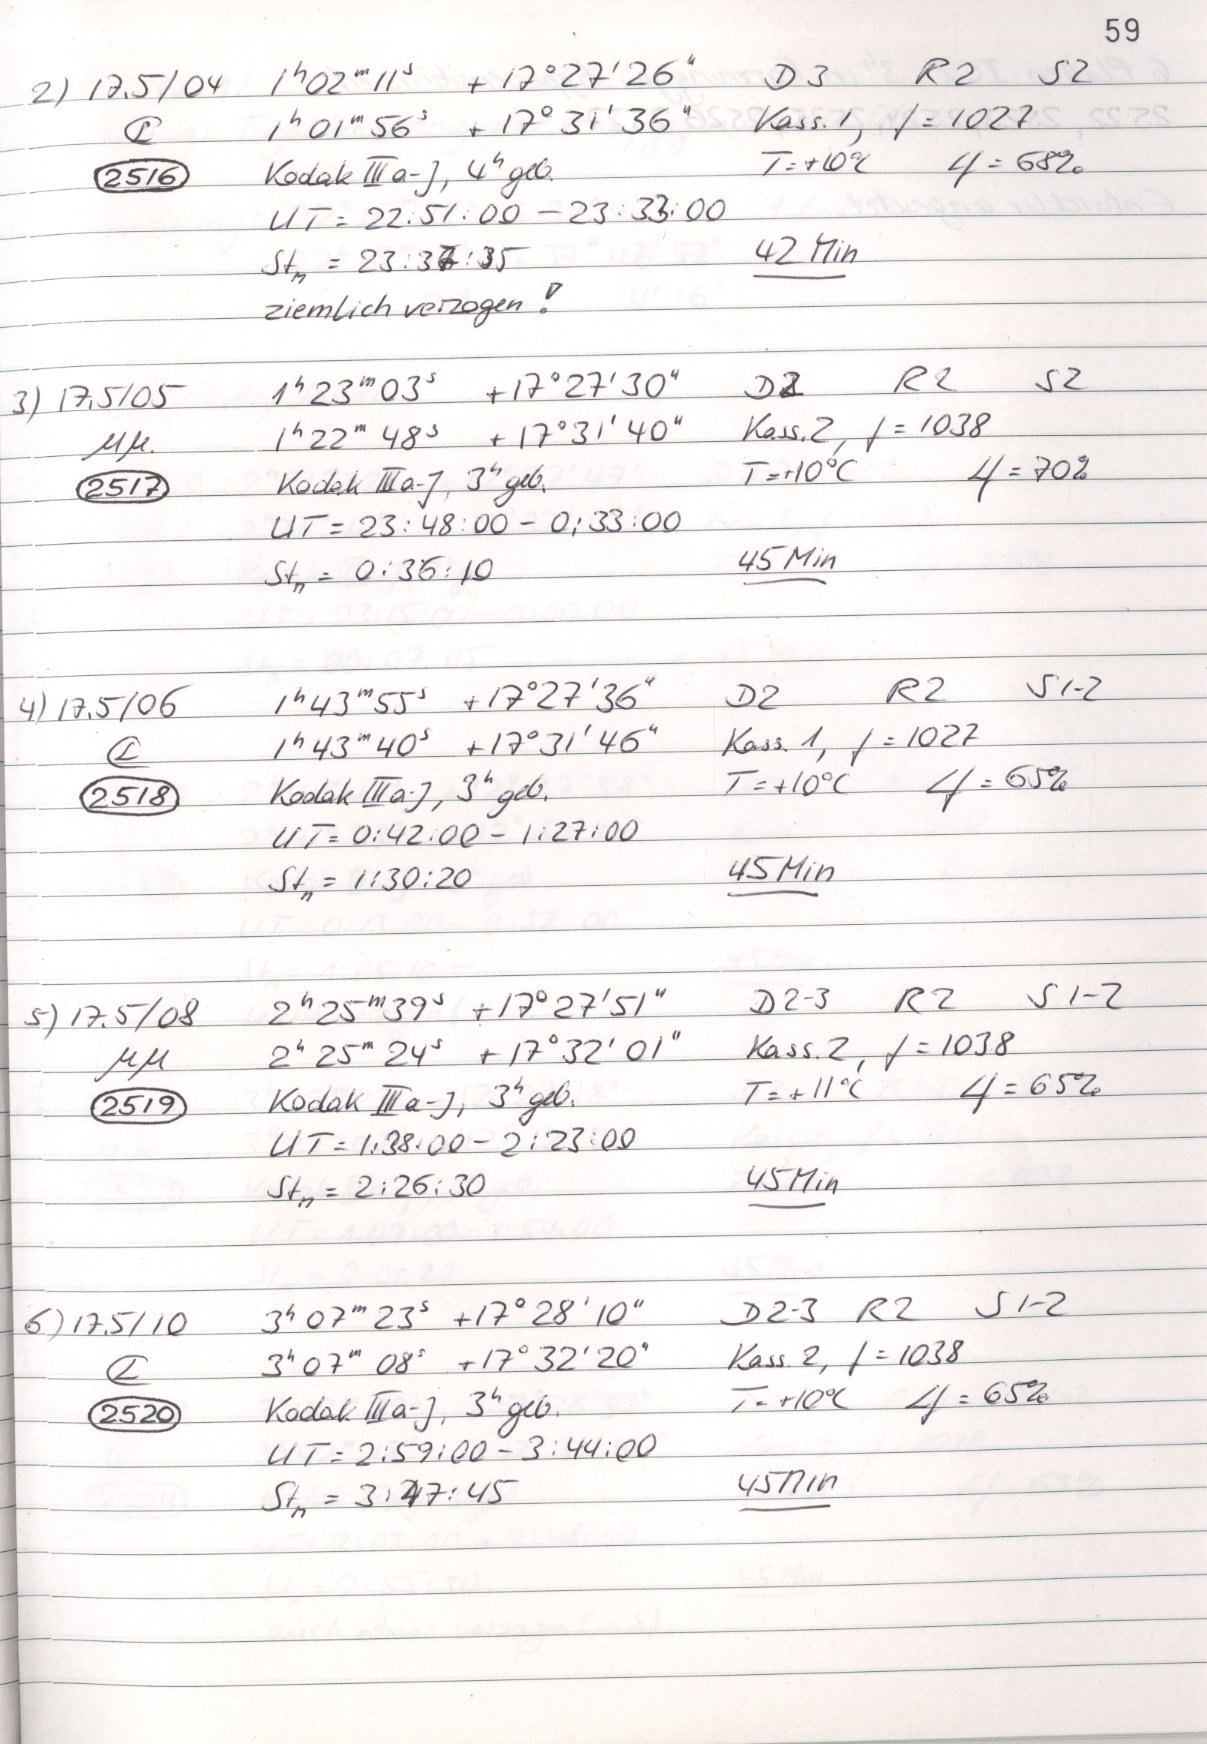 59
2) 17.5/04 1ʰ02ᵐ11ˢ +17°27'26" D3 R2 S2
1ʰ01ᵐ56ˢ +17°31'36" Kass. 1, f = 1027
2516 Kodak IIIa-J, 4ʰ geb. T=+10°C φ = 68%
UT = 22:51:00 – 23:33:00
Stₙ = 23:37:35 42 Min
ziemlich verzogen!
3) 17.5/05 1ʰ23ᵐ03ˢ +17°27'30" D2 R2 S2
μμ. 1ʰ22ᵐ48ˢ +17°31'40" Kass. 2, f = 1038
2517 Kodak IIIa-J, 3ʰ geb. T=+10°C φ = 70%
UT = 23:48:00 – 0:33:00
Stₙ = 0:36:10 45 Min
4) 17.5/06 1ʰ43ᵐ55ˢ +17°27'36" D2 R2 S1-2
1ʰ43ᵐ40ˢ +17°31'46" Kass. 1, f = 1027
2518 Kodak IIIa-J, 3ʰ geb. T=+10°C φ = 65%
UT = 0:42:00 – 1:27:00
Stₙ = 1:30:20 45 Min
5) 17.5/08 2ʰ25ᵐ39ˢ +17°27'51" D2-3 R2 S1-2
μμ 2ʰ25ᵐ24ˢ +17°32'01" Kass. 2, f = 1038
2519 Kodak IIIa-J, 3ʰ geb. T=+11°C φ = 65%
UT = 1:38:00 – 2:23:00
Stₙ = 2:26:30 45 Min
6) 17.5/10 3ʰ07ᵐ23ˢ +17°28'10" D2-3 R2 S1-2
3ʰ07ᵐ08ˢ +17°32'20" Kass. 2, f = 1038
2520 Kodak IIIa-J, 3ʰ geb. T=+10°C φ = 65%
UT = 2:59:00 – 3:44:00
Stₙ = 3:47:45 45 Min